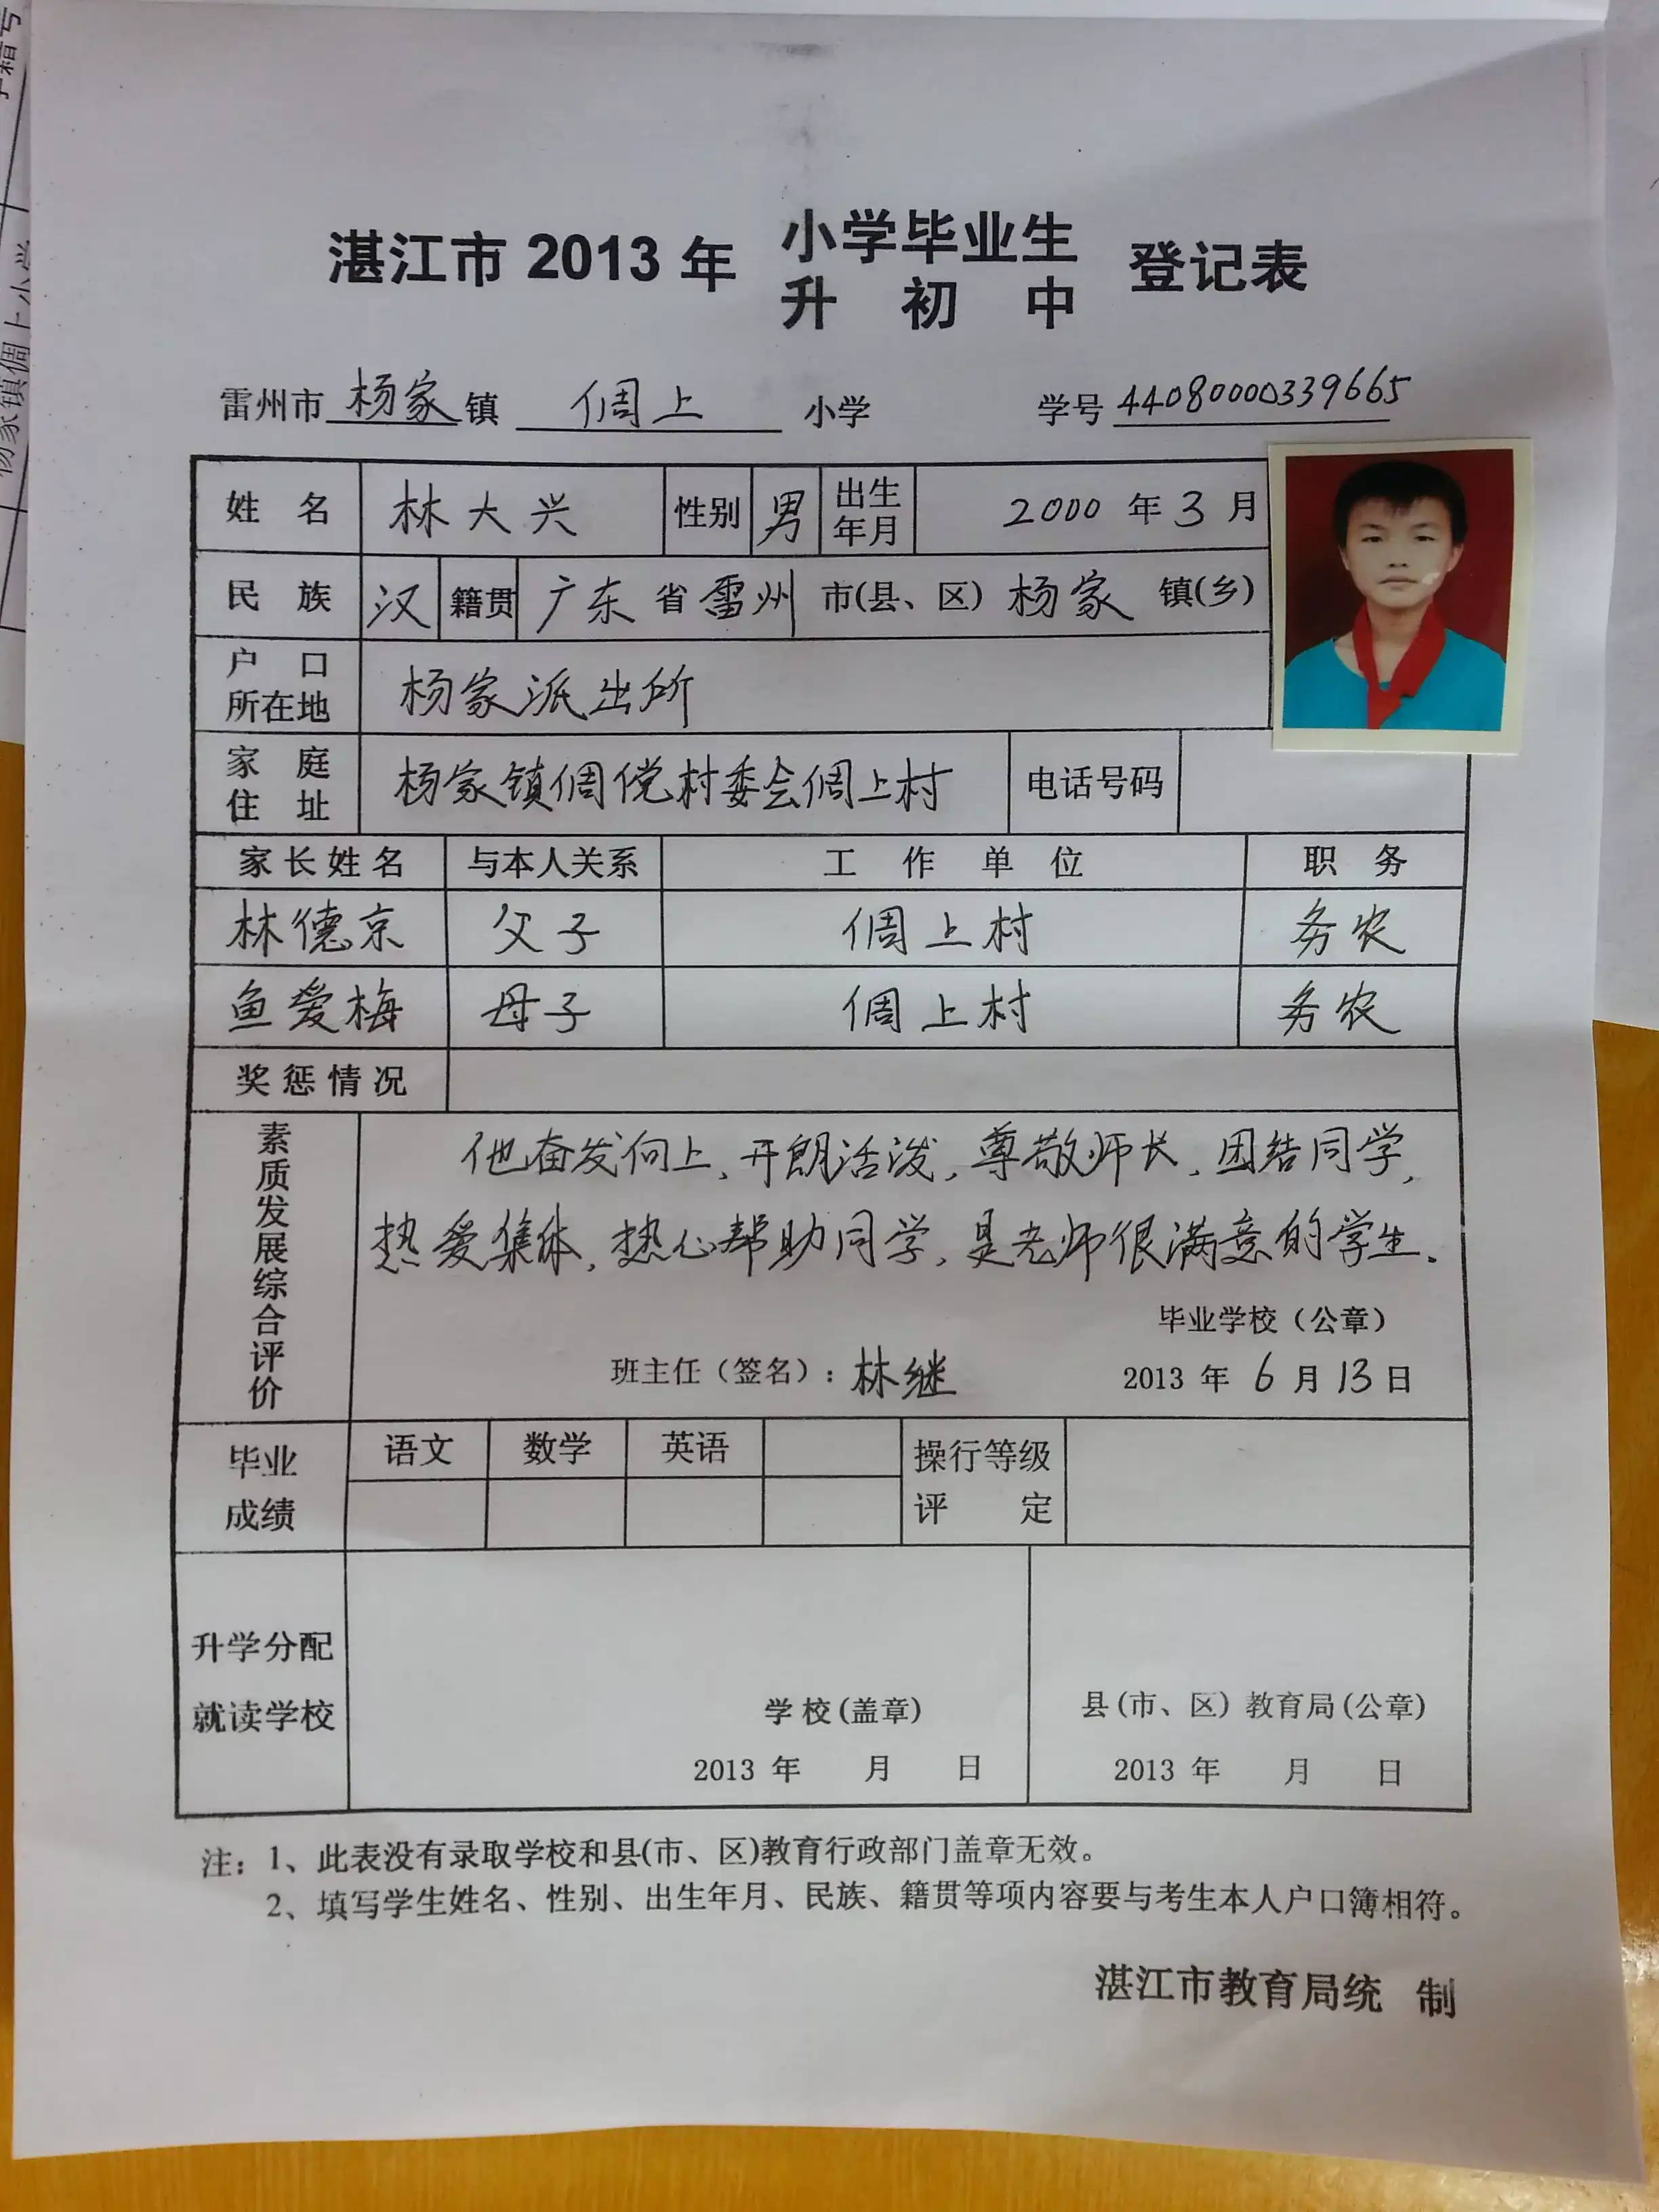 湛江市 2013 年 小学毕业生 登记表
升 初 中
雷州市杨家镇 倜上 小学 学号 44080000339665
姓 名 林大兴 性别 男 出生年月 2000 年 3 月
民 族 汉 籍贯 广东 省 雷州 市(县、区) 杨家 镇(乡)
户 口
所在地 杨家派出所
家 庭
住 址 杨家镇倜傥村委会倜上村 电话号码
家长姓名 与本人关系 工 作 单 位 职 务
林德京 父子 倜上村 务农
鱼爱梅 母子 倜上村 务农
奖惩情况
素质发展综合评价
他奋发向上、开朗活泼,尊敬师长、团结同学,
热爱集体,热心帮助同学,是老师很满意的学生。
毕业学校(公章)
班主任(签名): 林继 2013 年 6 月 13 日
毕业
成绩
语文 数学 英语 操行等级
评 定
升学分配
就读学校
学校(盖章) 县(市、区)教育局(公章)
2013 年 月 日 2013 年 月 日
注: 1、此表没有录取学校和县(市、区)教育行政部门盖章无效。
2、填写学生姓名、性别、出生年月、民族、籍贯等项内容要与考生本人户口簿相符。
湛江市教育局统 制
杨家镇倜上小学